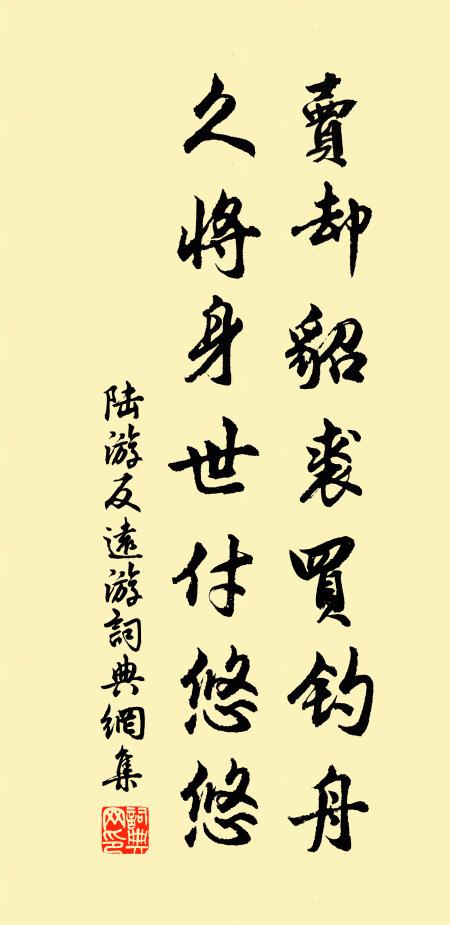 賣却貂裘買釣舟
久將身世付悠悠
陸游反遠游詞典網集
詞典網印